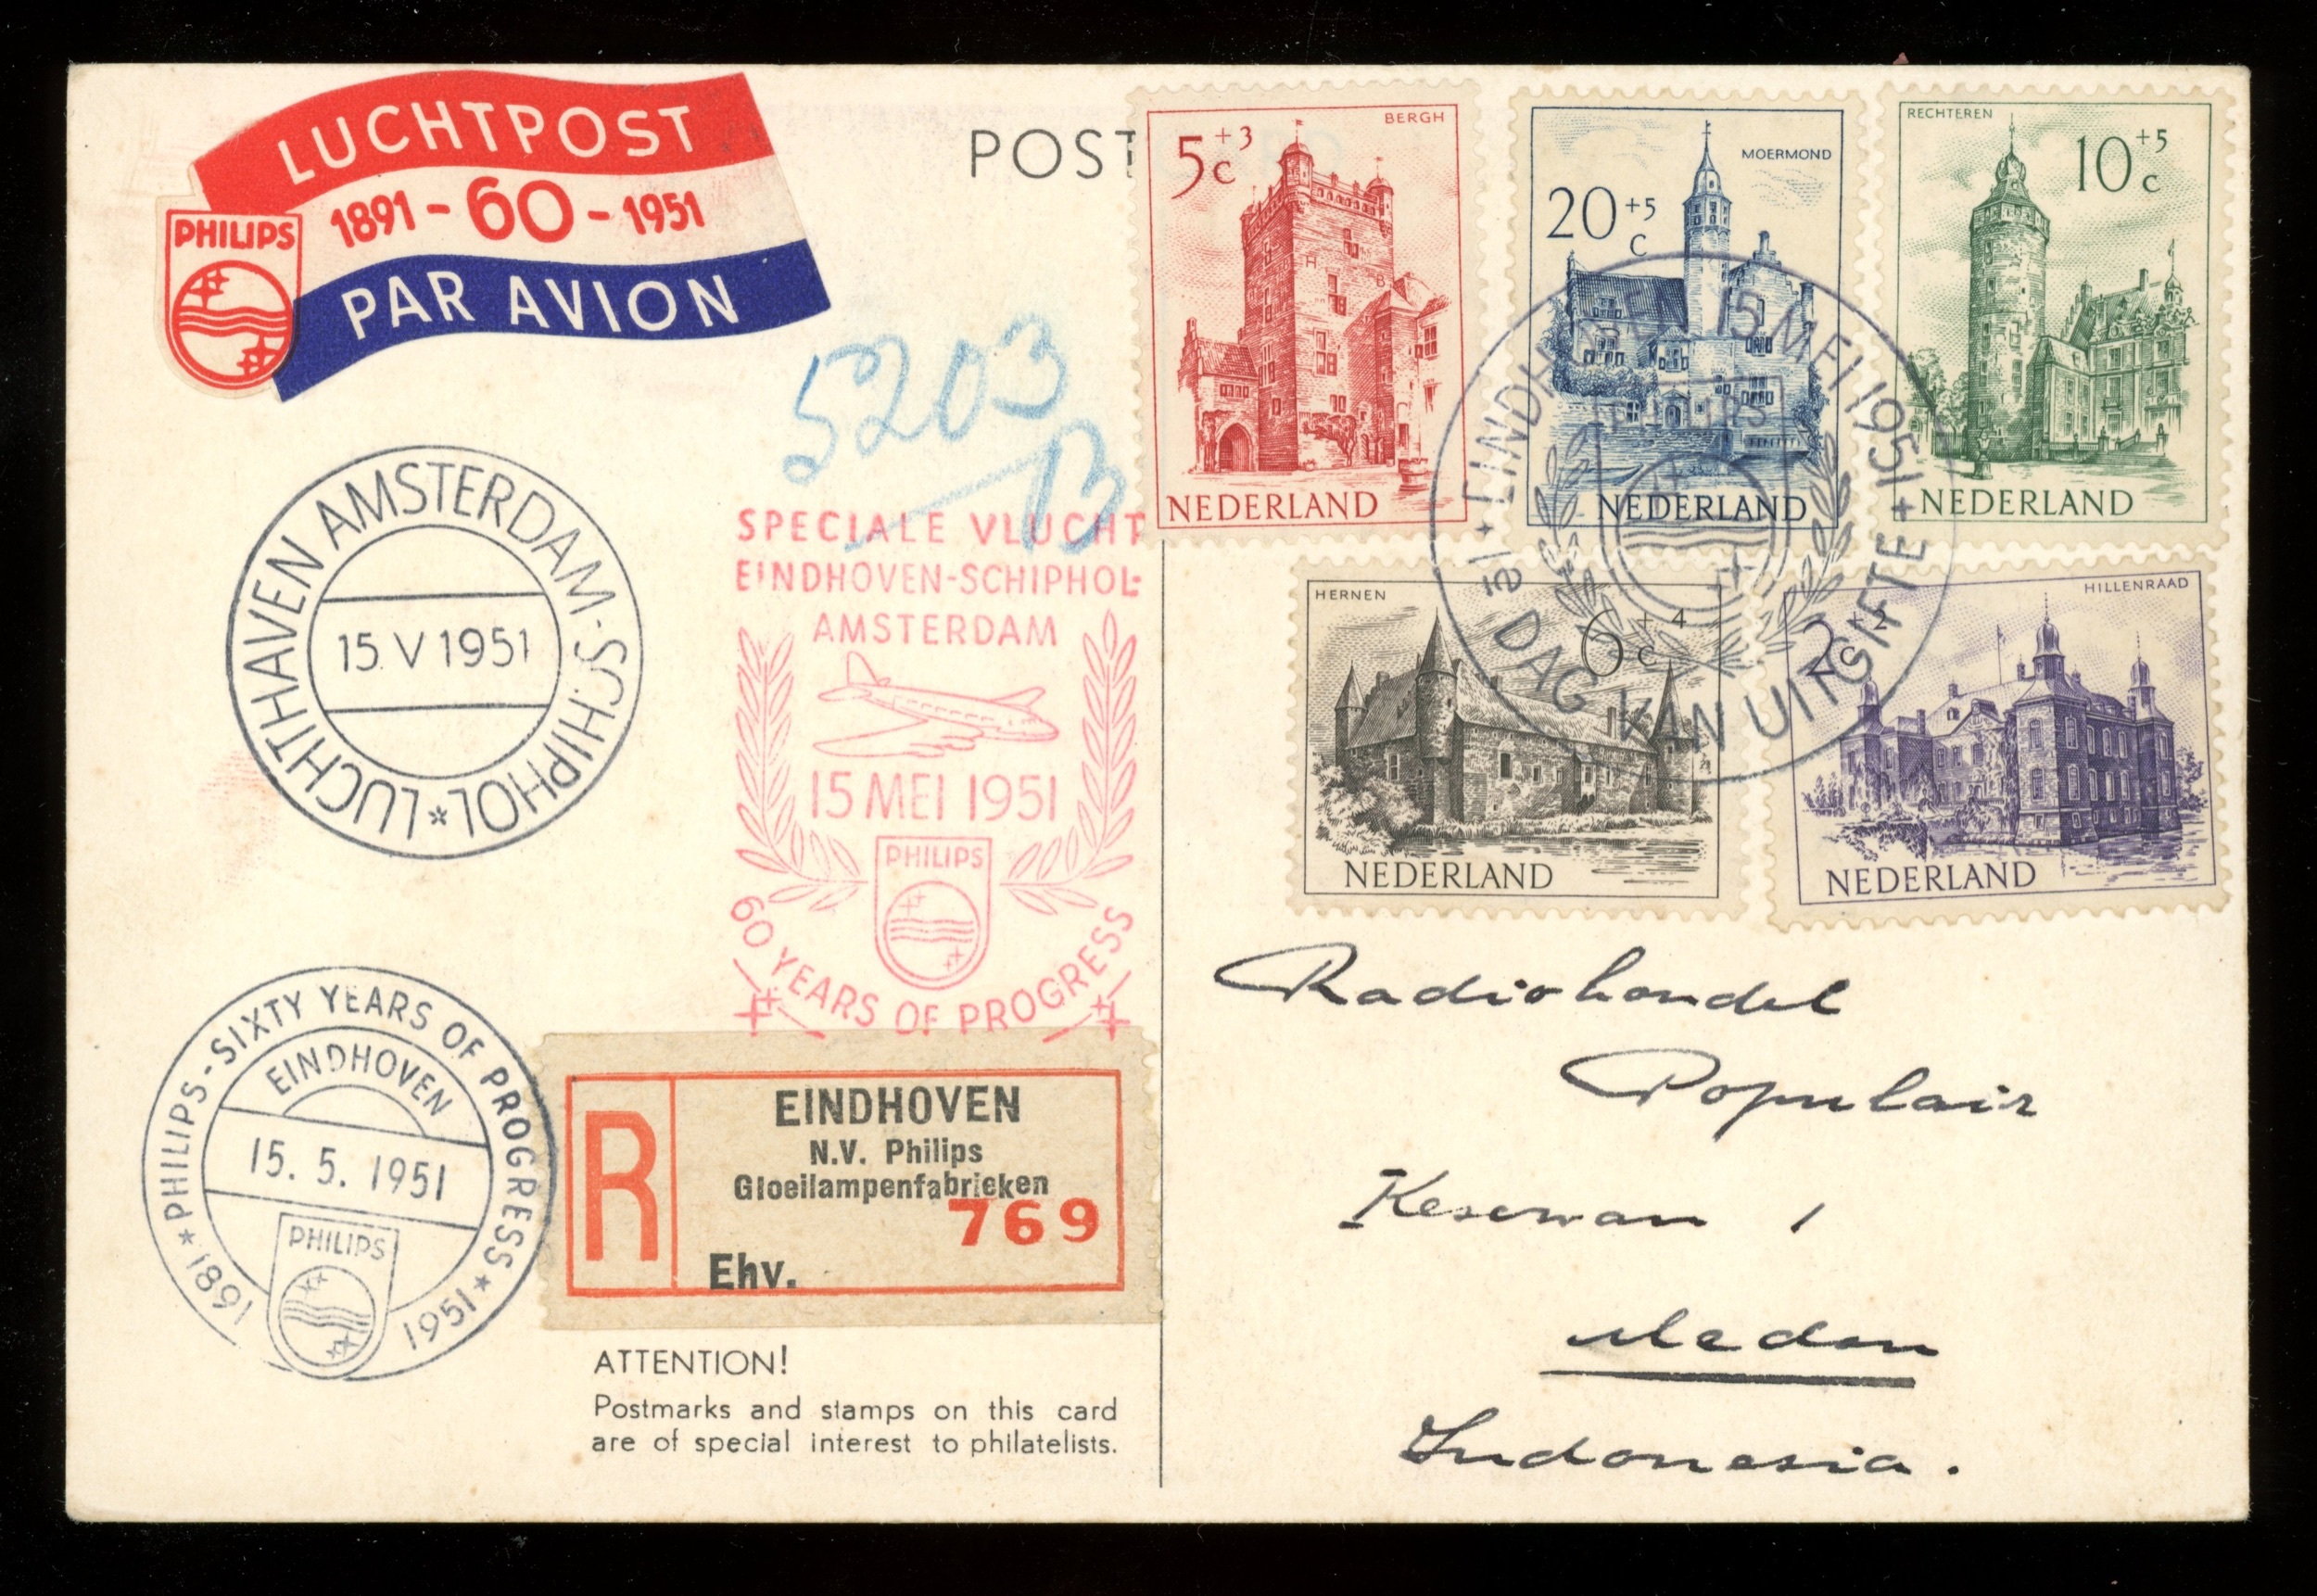 LUCHTPOST
1891 - 60 - 1951
PAR AVION
PHILIPS
POST
5+3 c
BERGH
NEDERLAND
20+5 c
MOERMOND
NEDERLAND
RECHTEREN
10+5 c
NEDERLAND
HERNEN
6+4 c
NEDERLAND
HILLENRAAD
2+2 c
NEDERLAND
EINDHOVEN 15 MEI 1951 +
PHILIPS
1e DAG VAN UITGIFTE
5203
B
LUCHTHAVEN AMSTERDAM-SCHIPHOL *
15 V 1951
SPECIALE VLUCHT
EINDHOVEN-SCHIPHOL-
AMSTERDAM
15 MEI 1951
PHILIPS
60 YEARS OF PROGRESS
* PHILIPS - SIXTY YEARS OF PROGRESS *
EINDHOVEN
15. 5. 1951
PHILIPS
1891 1951
R
EINDHOVEN
N.V. Philips
Gloeilampenfabrieken
769
Ehv.
ATTENTION!
Postmarks and stamps on this card
are of special interest to philatelists.
Radiohandel
Populair
Kesawan 1
Medan
Indonesia.